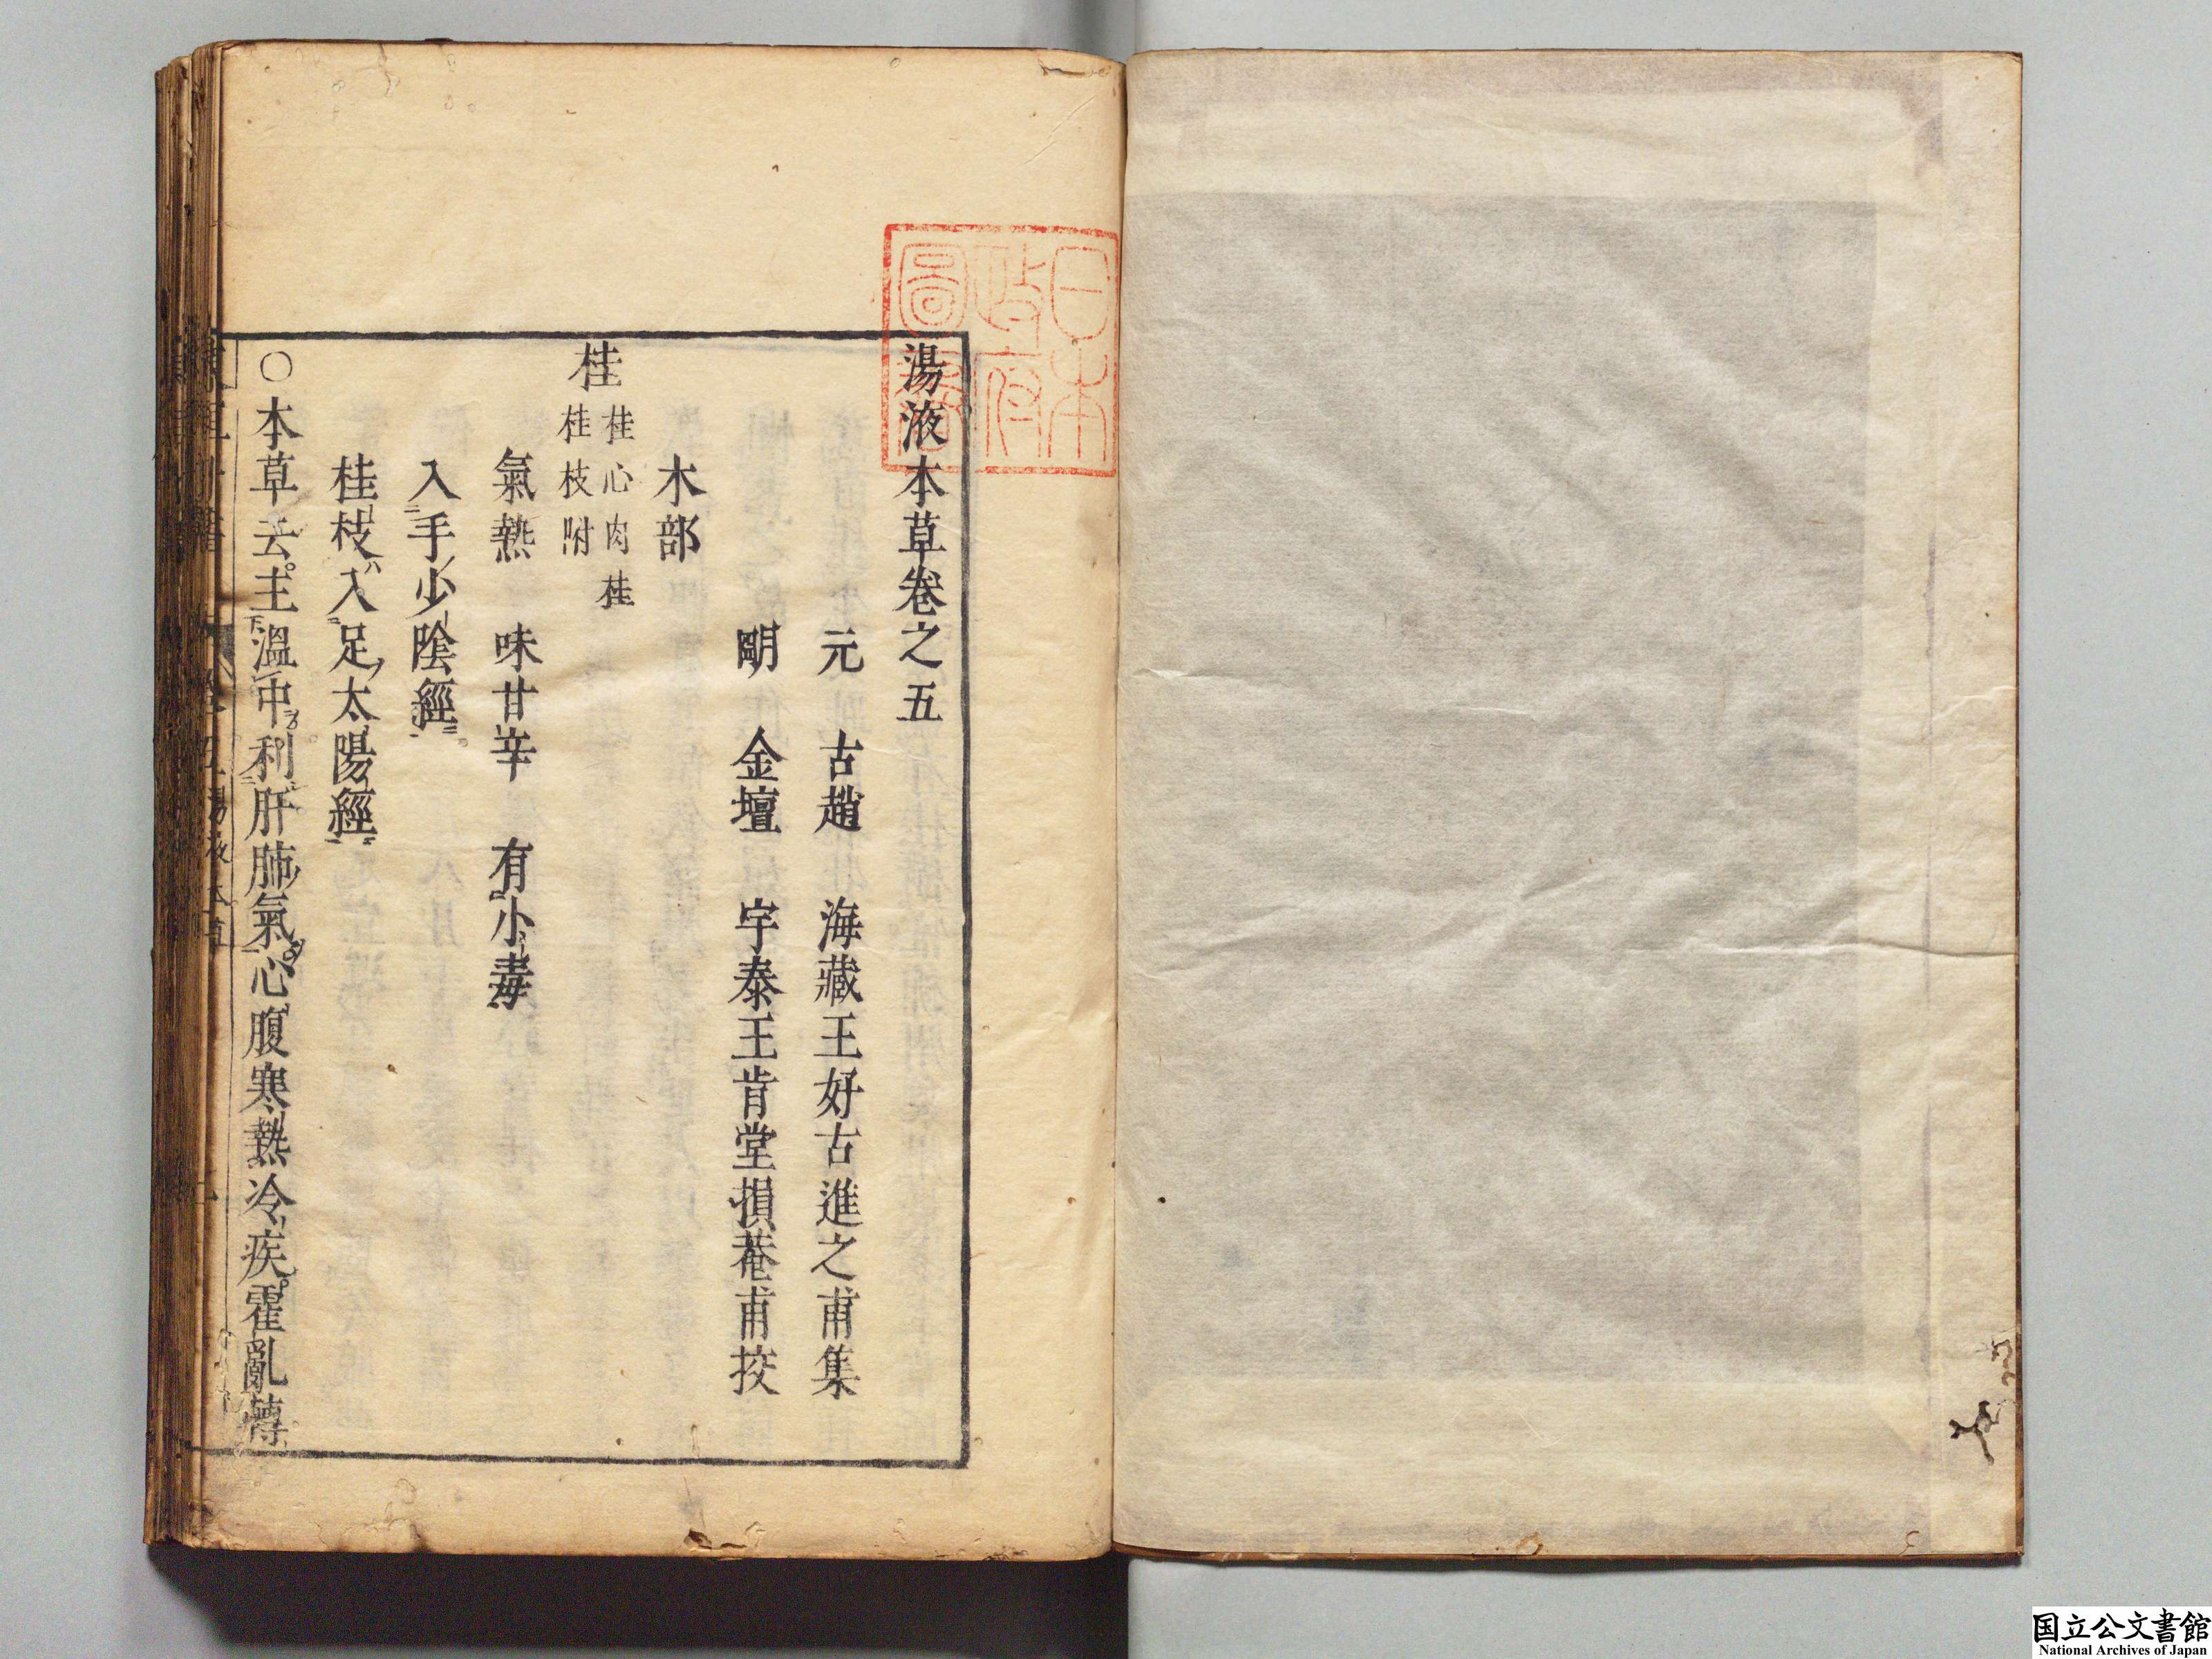 湯液本草卷之五
元　古趙　海藏王好古進之甫集
明　金壇　宇泰王肯堂損菴甫挍
木部
桂
桂心肉桂
桂枝附
氣熱　味甘辛　有小毒
入手少陰經
桂枝入足太陽經
○本草云主溫中利肝肺氣心腹寒熱冷疾霍亂轉
日本
政府
圖書
国立公文書館
National Archives of Japan